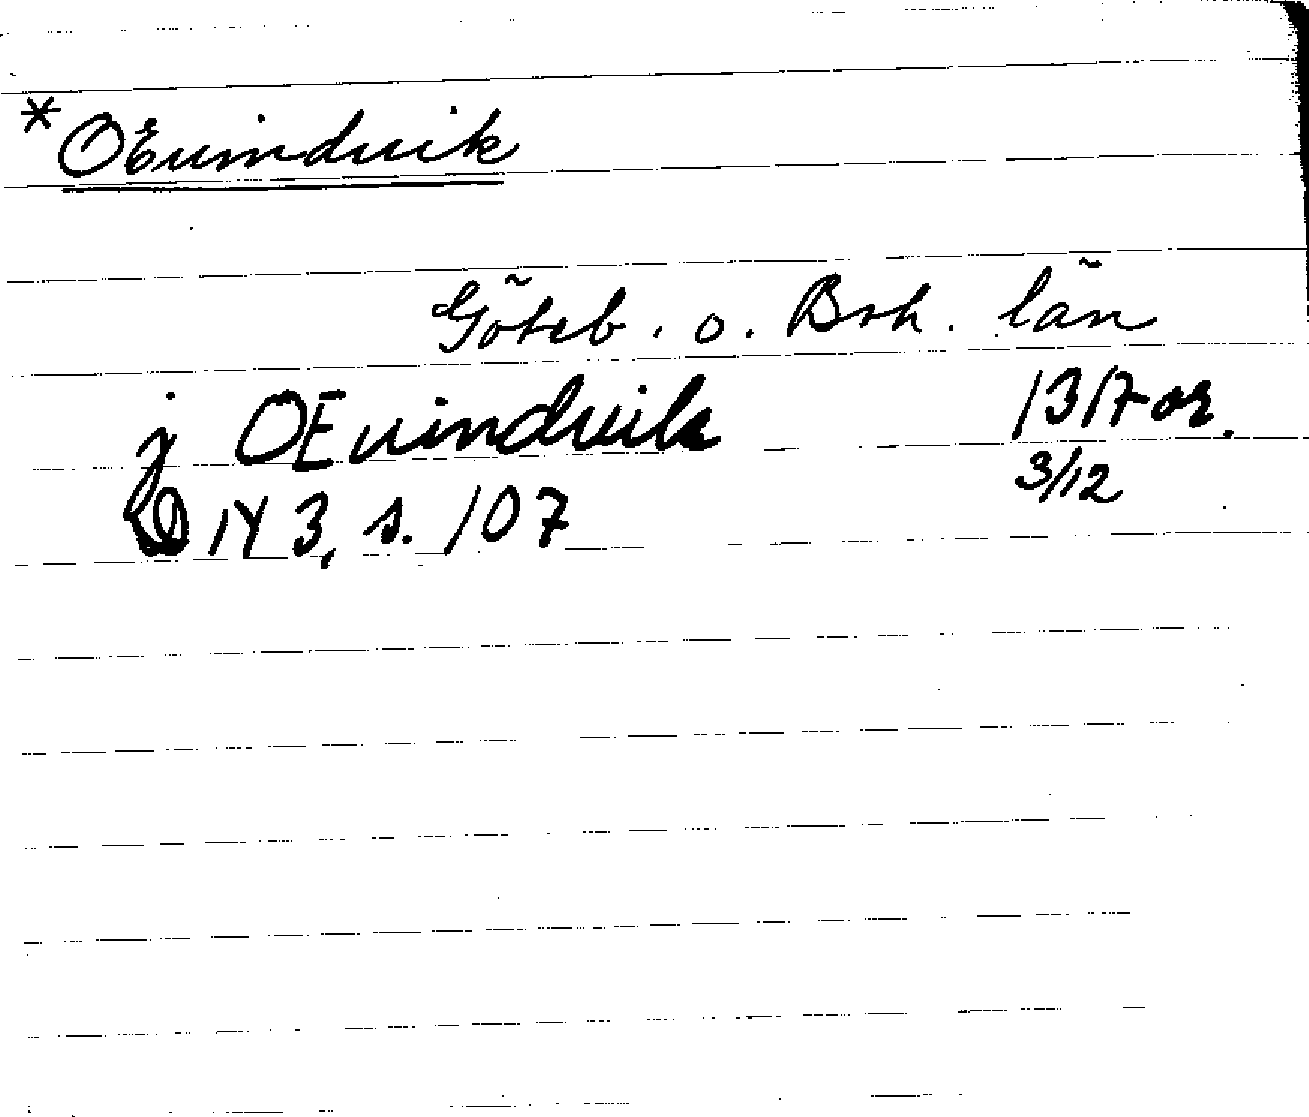 *OEuindvik
Göteb. o. Boh. län
j OEuindvik 1317 or.
3/12
DN 3, s. 107